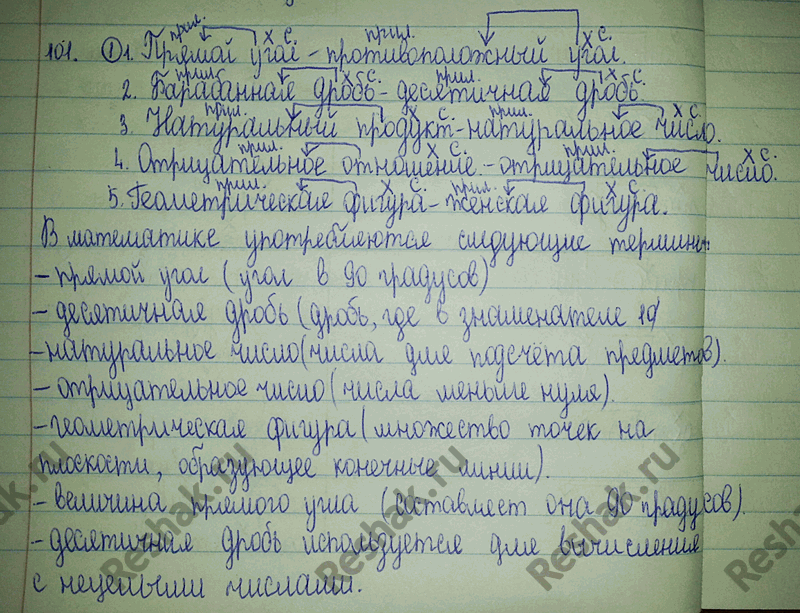 прил. х с. прил. х с.
101. ① 1. Прямой угол - противоположный угол.
прил. х с. прил. х с.
2. Барабанная дробь - десятичная дробь.
прил. х с. прил. х с.
3. Натуральный продукт - натуральное число.
прил. х с. прил. х с.
4. Отрицательное отношение - отрицательное число.
прил. х с. прил. х с.
5. Геометрическая фигура - женская фигура.
В математике употребляются следующие термины:
- прямой угол (угол в 90 градусов)
- десятичная дробь (дробь, где в знаменателе 10)
- натуральное число (числа для подсчёта предметов).
- отрицательное число (числа меньше нуля).
- геометрическая фигура (множество точек на
плоскости, образующее конечные линии).
- величина прямого угла (составляет она 90 градусов).
- десятичная дробь используется для вычисления
с нецелыми числами.
Reshak.ru
Reshak.ru
Reshak.ru